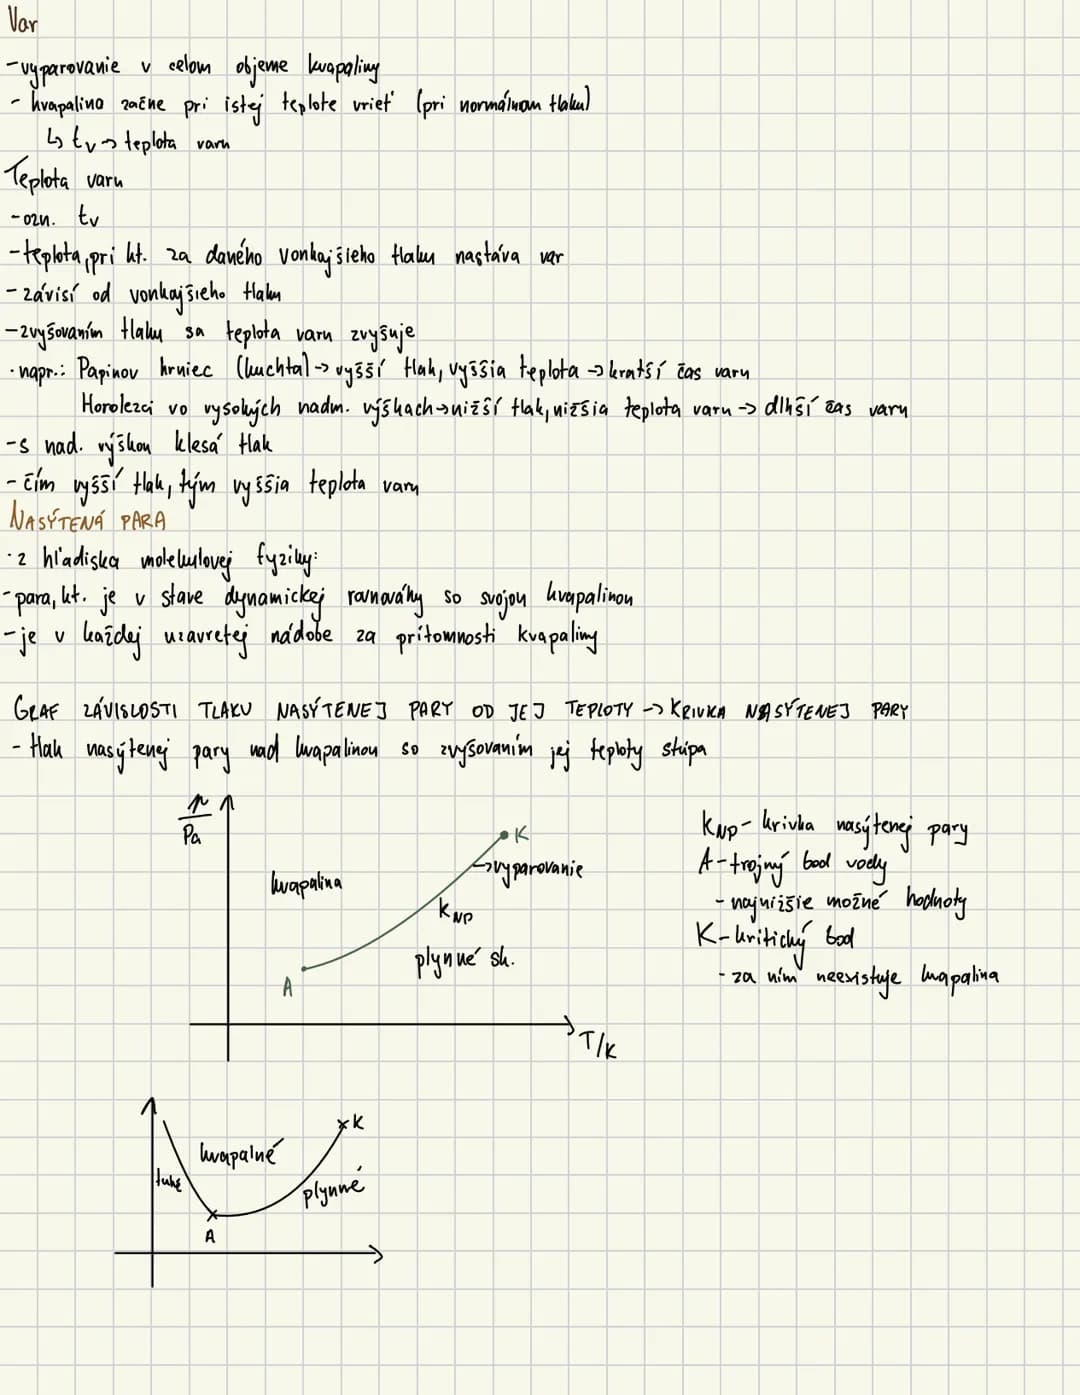 Var
-vyparovanie v celom objeme kvapaliny
- kvapalina začne pri istej teplote vrieť (pri normálnom tlaku)
↳ tv → teplota varu
Teplota varu
-ozn. tv
-teplota, pri kt. za daného vonkajšieho tlaku nastáva var
- závisí od vonkajšieho tlaku
-zvyšovaním tlaku sa teplota varu zvyšuje
·napr.: Papinov hrniec (kuchta) → vyšší tlak, vyššia teplota → kratší čas varu
Horolezci vo vysokých nadm. výškach → nižší tlak, nižšia teplota varu → dlhší čas varu
-s nad. výškou klesá tlak
- čím vyšší tlak, tým vyššia teplota varu
NASÝTENÁ PARA
·z hľadiska molekulovej fyziky:
-para, kt. je v stave dynamickej rovnováhy so svojou kvapalinou
-je v každej uzavretej nádobe za prítomnosti kvapaliny
GRAF ZÁVISLOSTI TLAKU NASÝTENEJ PARY OD JEJ TEPLOTY → KRIVKA NASÝTENEJ PARY
- tlak nasýtenej pary nad kvapalinou so zvyšovaním jej teploty stúpa
p/Pa
K
→vyparovanie
kvapalina
kNP
plynné sk.
A
T/K
kNP - krivka nasýtenej pary
A - trojný bod vody
- najnižšie možné hodnoty
K - kritický bod
- za ním neexistuje kvapalina
K
kvapalné
tuhé
plynné
A